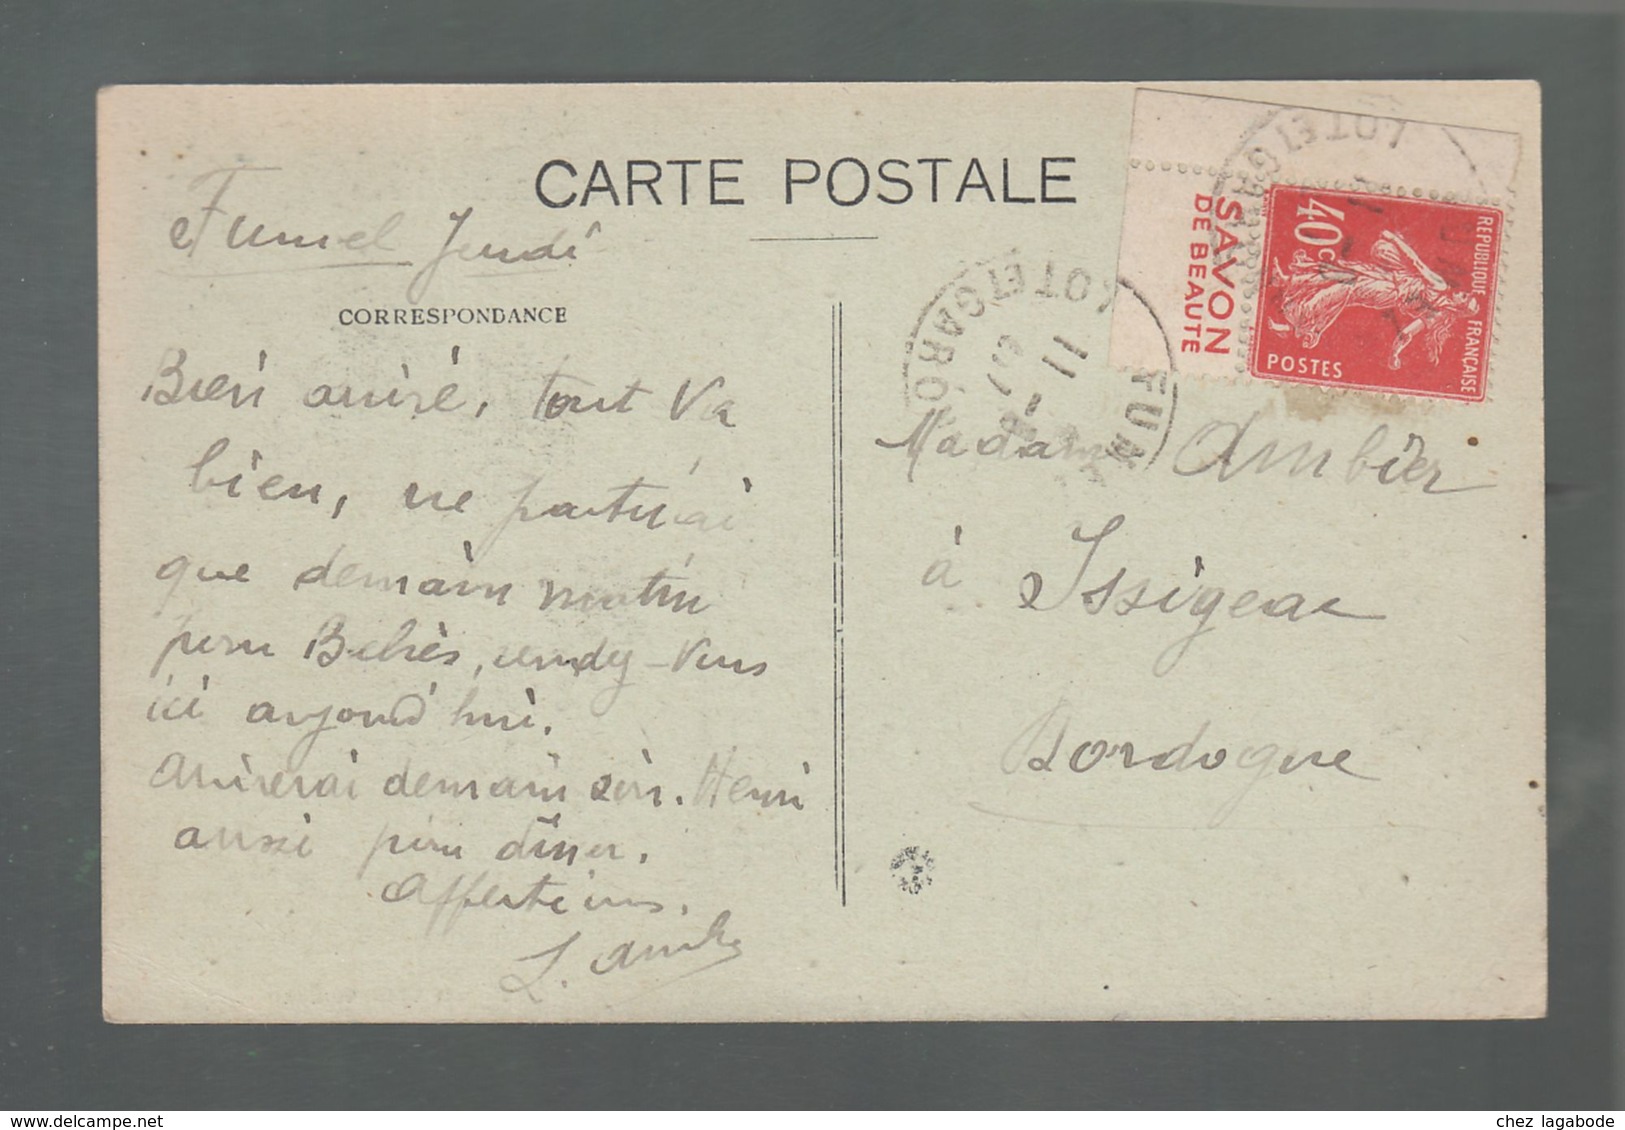 CARTE POSTALE
Fumel Jeudi
CORRESPONDANCE
Bien arrivé, tout va
bien, ne partirai
que demain matin
pour Belvès, rendez-vous
ici aujourd'hui.
Arriverai demain soir. Henri
aussi pour dîner.
Affections.
L. Ambier
SAVON
DE BEAUTE
REPUBLIQUE FRANÇAISE
40c
POSTES
LOT ET G
FUM
LOT ET GARONNE
11
Madame Ambier
à Issigeac
Dordogne
chez lagabode